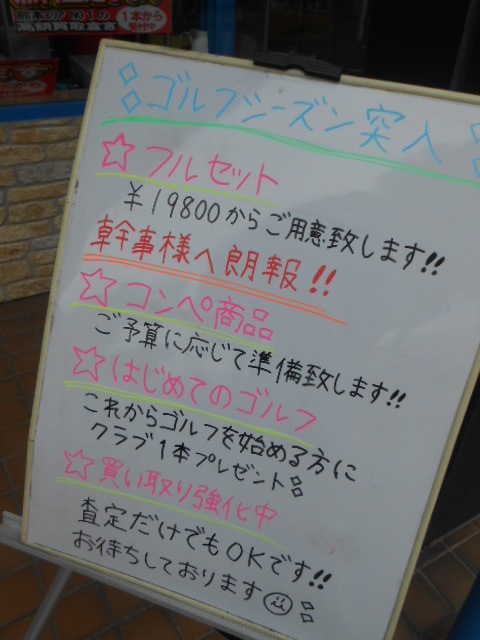 熊本エリア NO1の
高額買取査定
1本から
受付中
ゴルフシーズン突入
☆フルセット
¥19800からご用意致します!!
幹事様へ朗報!!
☆コンペ商品
ご予算に応じて準備致します!!
☆はじめてのゴルフ
これからゴルフを始める方に
クラブ1本プレゼント
☆買い取り強化中
査定だけでもOKです!!
お待ちしております